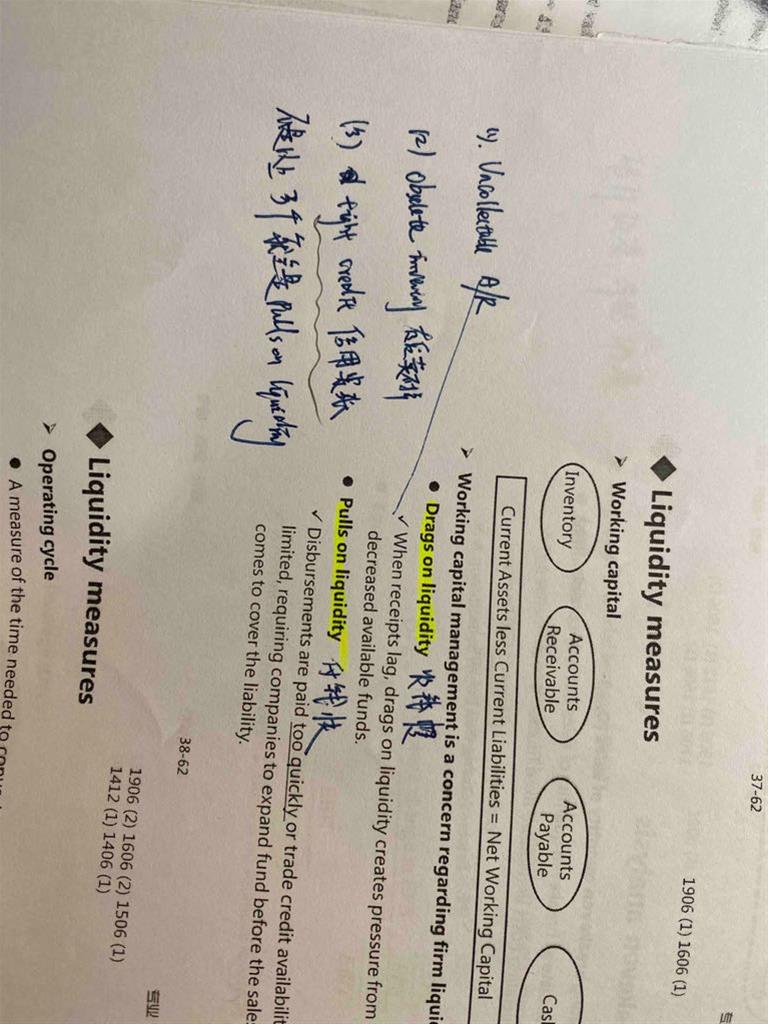 37-62
1906 (1) 1606 (1)
Liquidity measures
Working capital
Inventory
Accounts Receivable
Accounts Payable
Current Assets less Current Liabilities = Net Working Capital
Working capital management is a concern regarding firm
Drags on liquidity 收钱慢
When receipts lag, drags on liquidity creates pressure from
decreased available funds.
Pulls on liquidity 付钱快
Disbursements are paid too quickly or trade credit
limited, requiring companies to expand fund before the
comes to cover the liability.
(1). Uncollectable A/R
(2) Obsolete
(3) tight credit 信用紧缩
3个 Pulls on liquidity
38-62
1906 (2) 1606 (2) 1506 (1)
1412 (1) 1406 (1)
Liquidity measures
Operating cycle
A measure of the time needed to
专业